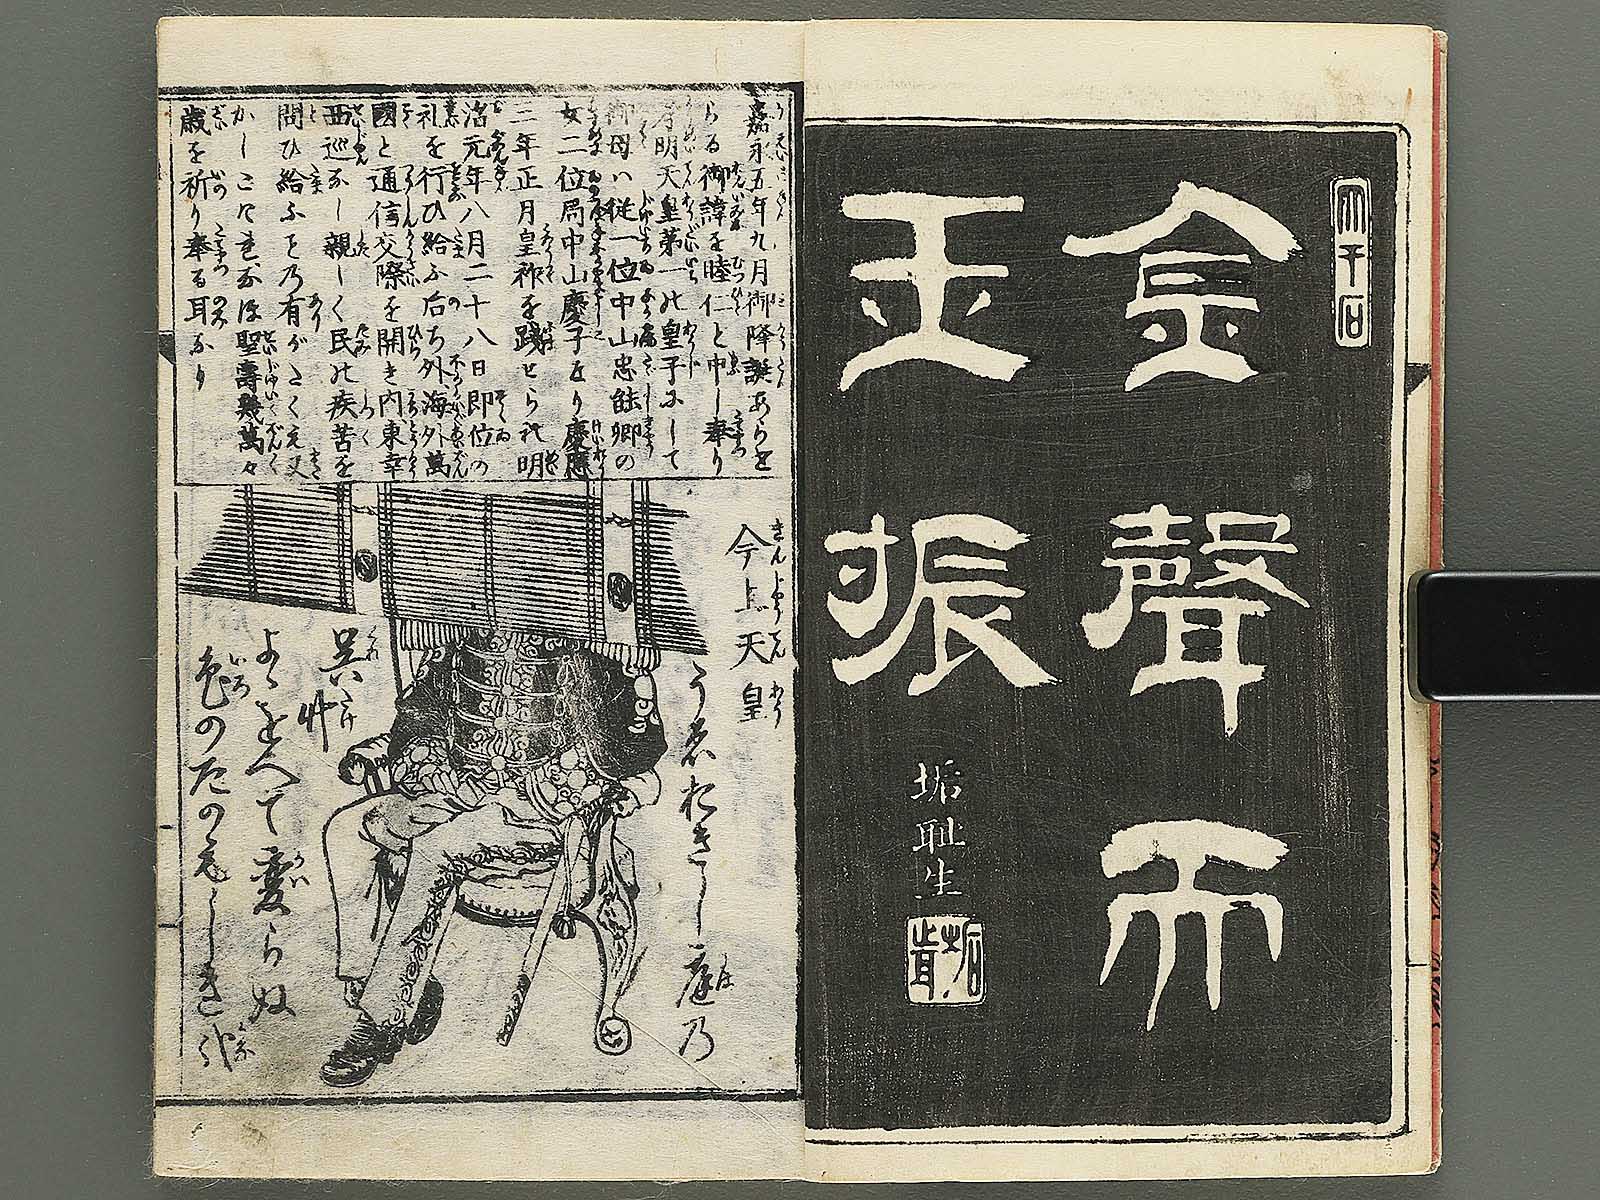 金聲而
玉振
垢耻生
嘉永五年九月御降誕あらせ
らる御諱を睦仁と申し奉り
孝明天皇第一の皇子にして
御母ハ従一位中山忠能卿の
女二位局中山慶子なり慶應
三年正月皇祚を踐せられ明
治元年八月二十八日即位の
礼を行ひ給ふ后ち外海外萬
國と通信交際を開き内東幸
西巡なし親しく民の疾苦を
問ひ給ふその有がたく
かしこさ
聖壽幾萬々
歳を祈り奉る耳なり
今上天皇
きんじやうてんわう
うゑおきし庭乃
呉竹
よゝをへて変らぬ
色のたのもしき哉